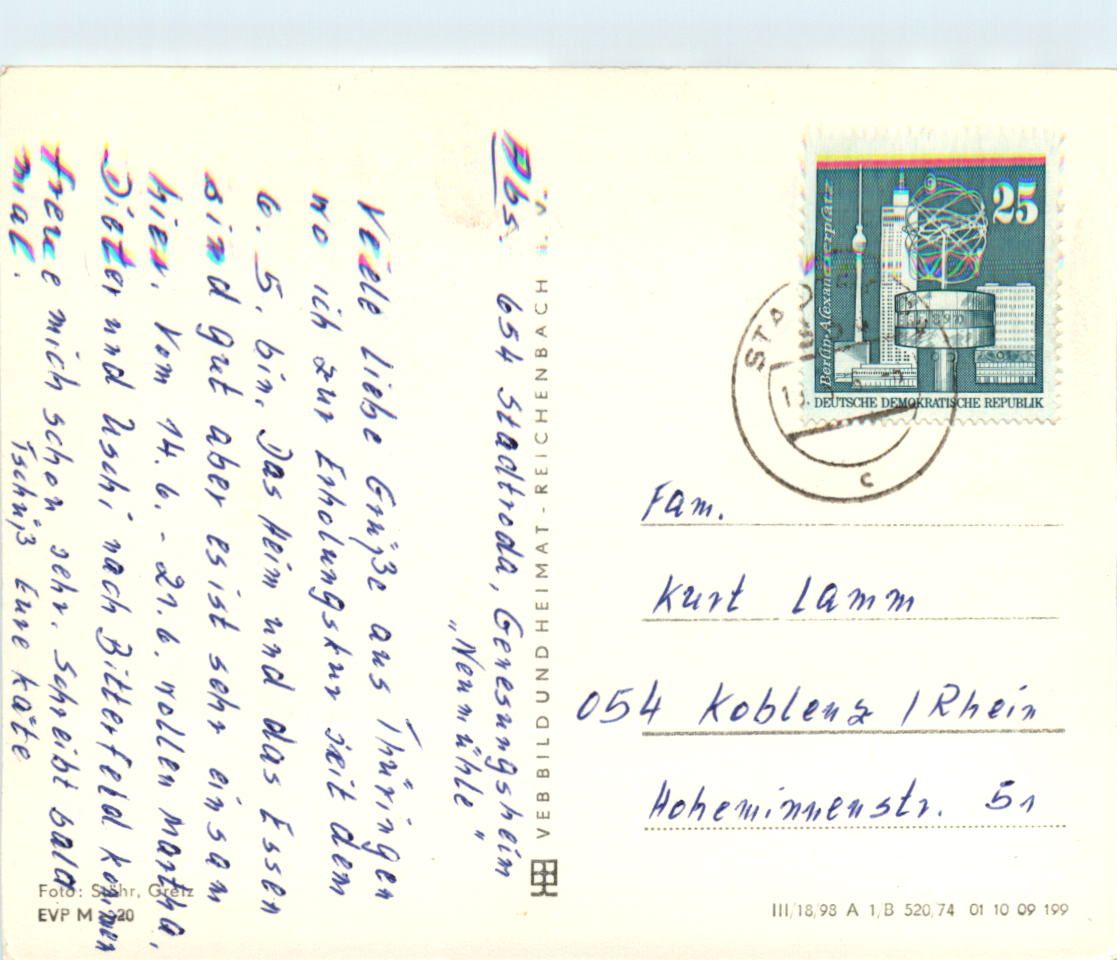 Abs. 654 Stadtroda, Genesungsheim
"Neumühle"
Viele liebe Grüße aus Thüringen
wo ich zur Erholungskur seit dem
6. 5. bin. Das Heim und das Essen
sind gut aber es ist sehr einsam
hier. Vom 14. 6. - 21. 6. wollen Martha,
Dieter und Uschi nach Bitterfeld kommen
freue mich schon sehr. Schreibt bald
mal. Tschüß Eure Käte
VEB BILD UND HEIMAT - REICHENBACH i. V.
Foto: Stöhr, Greiz
EVP M 0,20
Berlin-Alexanderplatz
25
DEUTSCHE DEMOKRATISCHE REPUBLIK
c
Fam.
Kurt Lamm
054 Koblenz / Rhein
Hoheminnenstr. 51
III/18/98 A 1/B 520/74 01 10 09 199